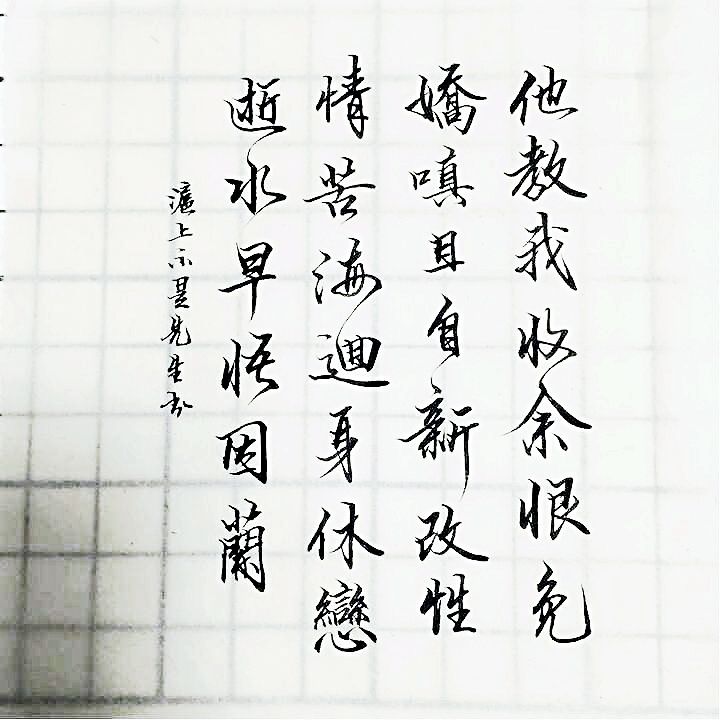 他教我收余恨免
嬌嗔且自新改性
情苦海迴身休戀
逝水早悟因蘭
滬上不是先生書